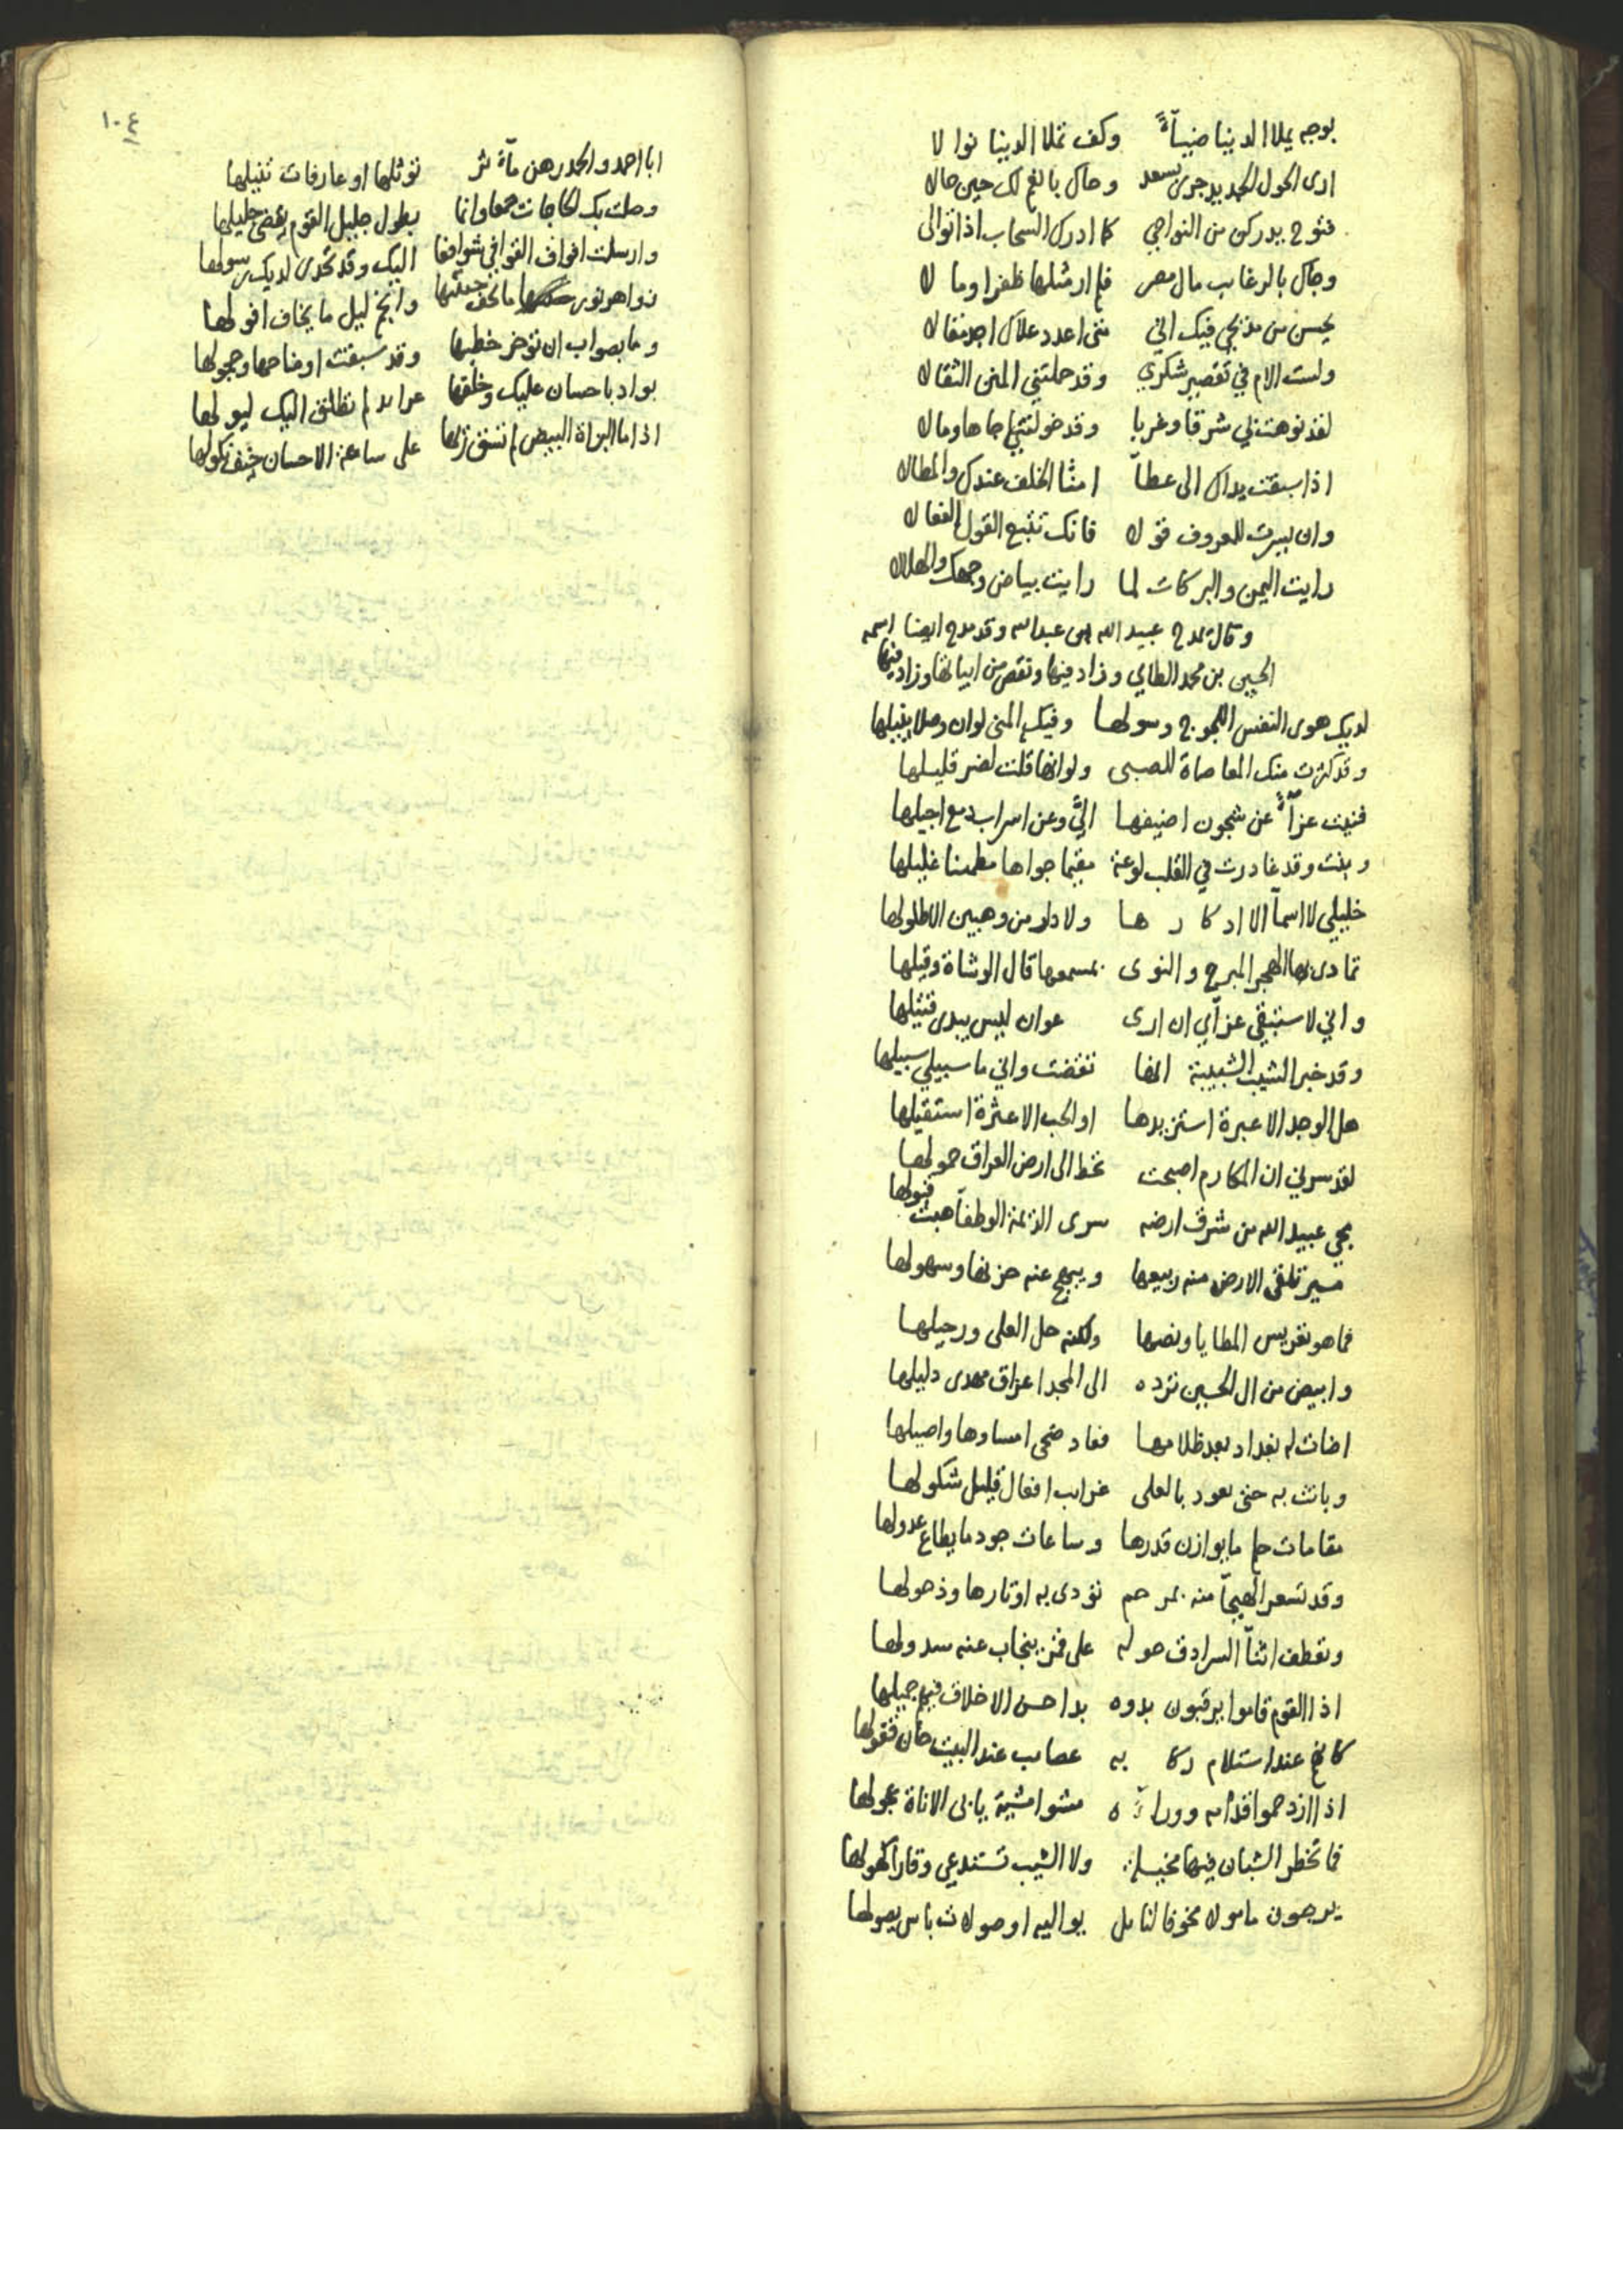 بوجه يملا الدنيا ضيآءً وكف تملا الدنيا نوالا
ارى الحول الجديد جرى بسعد وحال بالغ لك حين حالا
فتوح يدركن من النواحي كما ادرك السحاب اذا توالى
وجآك بالرغايب مال مصر فلم ار مثلها ظفرا ومالا
يحسن من مديحي فيك اني متى اعدد علاك اجد مقالا
ولست الام في تقصير شكري وقد حملتني المنن الثقالا
لقد نوهت بي شرقا وغربا وقد خولتني جاها ومالا
اذا سبقت يداك الى عطآ امنا الخلف عندك والمطالا
وان يسرت للمعروف قولا فانك تتبع القول الفعالا
رايت اليمن والبركات لما رايت بياض وجهك والهلالا
وقال يمدح عبيد الله بن عبدالله وقد مدح ايضا اسمه
الحسين بن محمد الطاي وزاد فيها ونقص من ابياتها وزاد فيها
لديك هوى النفس اللجوج وسولها وفيك المنى لو ان وصلا ينيلها
وقد كثرت منك المعاصاة للصبى ولو انها قلت لضر قليلها
فنيت عزآءً عن شجون اضيفها اليّ وعن اسراب دمع اجيلها
وبنت وقد غادرت في القلب لوعة مقيما جواها مطمئنا غليلها
خليلي لا اسمآ الا ادكارها ولا دار من وهبين الا طلولها
تمادى بها الهجر المبرح والنوى بمسمعها قال الوشاة وقيلها
واني لاستبقي عزآي ان ارى عوان ليس يبدى فتيلها
وقد خبر الشيب الشبيبة انها تقضت واني ما سبيلي سبيلها
هل الوجد الا عبرة استزيدها او الحب الا عثرة استقيلها
لقد سرني ان المكارم اصبحت تحط الى ارض العراق حمولها
بمجي عبيد الله من شرق ارضه سرى الديمة الوطفآ هبت قبولها
مسير تلقى الارض منه ربيعها ويبهج عنه حزنها وسهولها
فما هو تعريس المطايا ونصها ولكنه حل العلى ورحيلها
وابيض من ال الحسين ترده الى المجد اعراق مهدى دليلها
اضات له بغداد بعد ظلامها فعاد ضحى امساوها واصيلها
وبانت به حتى يعود بالعلى غرايب افعال قليل شكولها
مقامات حلم ما يوازن قدرها وساعات جود ما يطاع عدولها
وقد تسعر الهيجآ منه بمرحم تودى به اوتارها وذحولها
وتعطف اثنآ السرادق حوله على قمر ينجاب عنه سدولها
اذا القوم قاموا يرقبون بدوه بدا حسن الاخلاق فيهم جميلها
كانهم عند استلام ركابه عصايب عند البيت حان قفولها
اذا ازدحموا قدامه وورآءه مشوا مشية يابى الاناة عجولها
فما تخطر الشبان فيها مخيلة ولا الشيب تستدعي وقارا كهولها
يرجون مامولا مخوفا لنايل يواليه او صولات باس يصولها
١٠٤
ابا احمد والحمد رهن مآثر توثلها او عارفات تنيلها
وصلت بك الحاجات جمعا وانما بطول جليل القوم يقضى جليلها
وارسلت افواف القوافي شوافعا اليك وقد تجدى لديك رسولها
زواهر نور ما يجف جنيها وانجم ليل ما يخاف افولها
وما بصواب ان توخر خطبها وقد سبقت اوضاحها وحجولها
بواد باحسان عليك وخلقها عرايد لم نطلق اليك لبولها
اذا ما البزاة البيض لم تسق ريها على ساعة الاحسان خيف نكولها